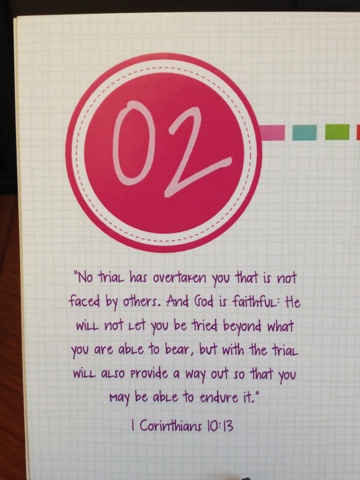 02
"No trial has overtaken you that is not
faced by others. And God is faithful: He
will not let you be tried beyond what
you are able to bear, but with the trial
will also provide a way out so that you
may be able to endure it."
1 Corinthians 10:13